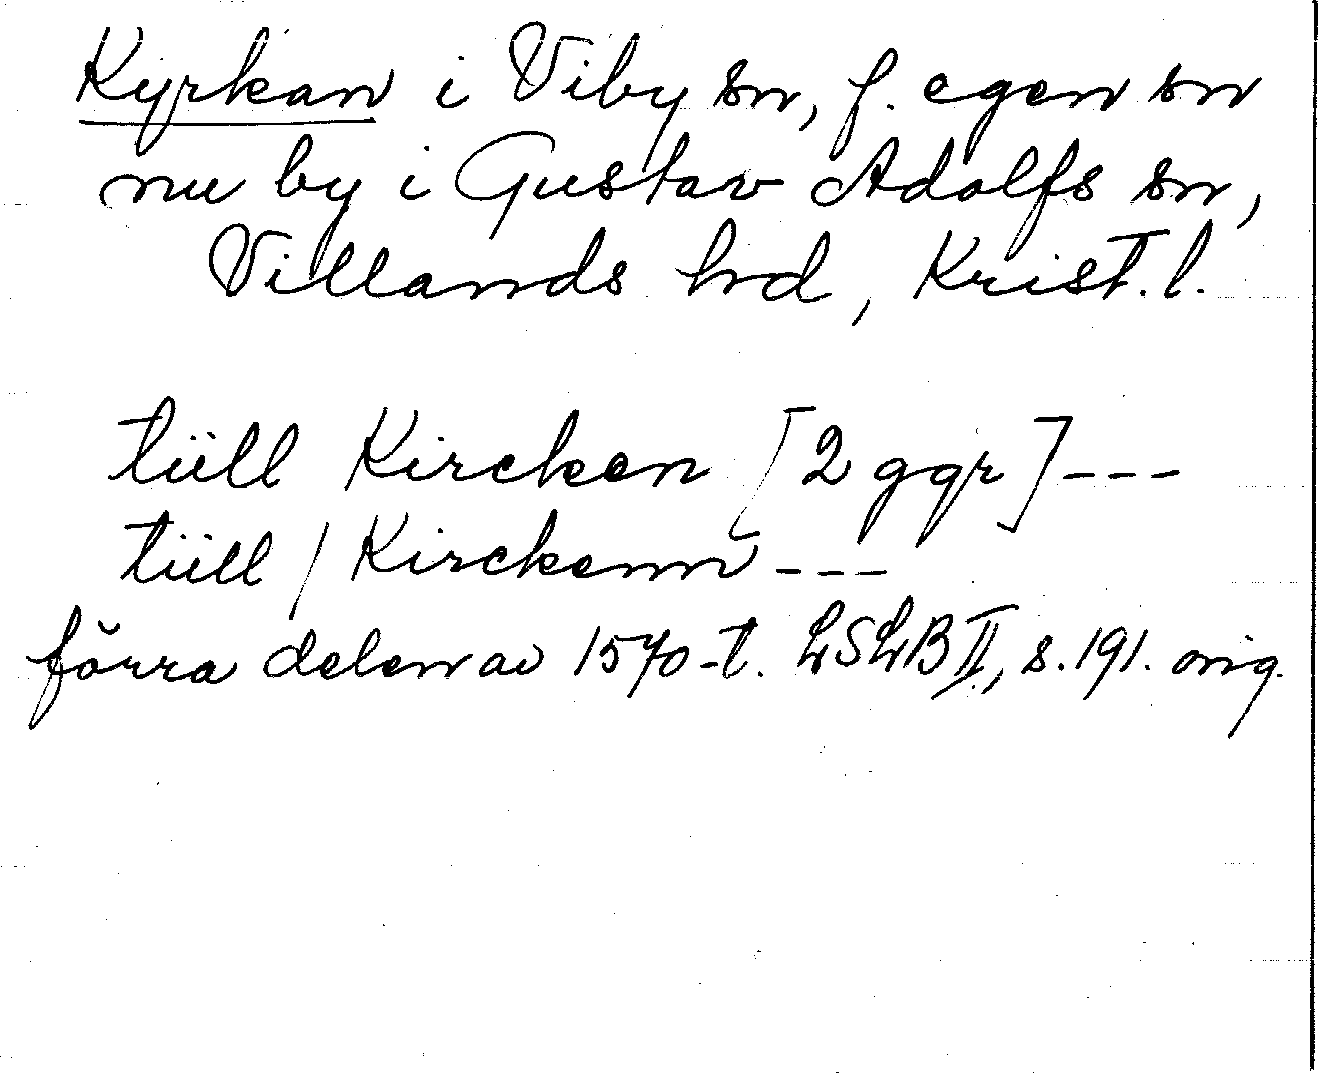 Kyrkan i Viby sn, f. egen sn
nu by i Gustav Adolfs sn,
Villands hd, Krist. l.
tiill Kircken [2 ggr] ---
tiill / Kirckenn ---
förra delen av 1570-t. LSLB II, s. 191. orig.